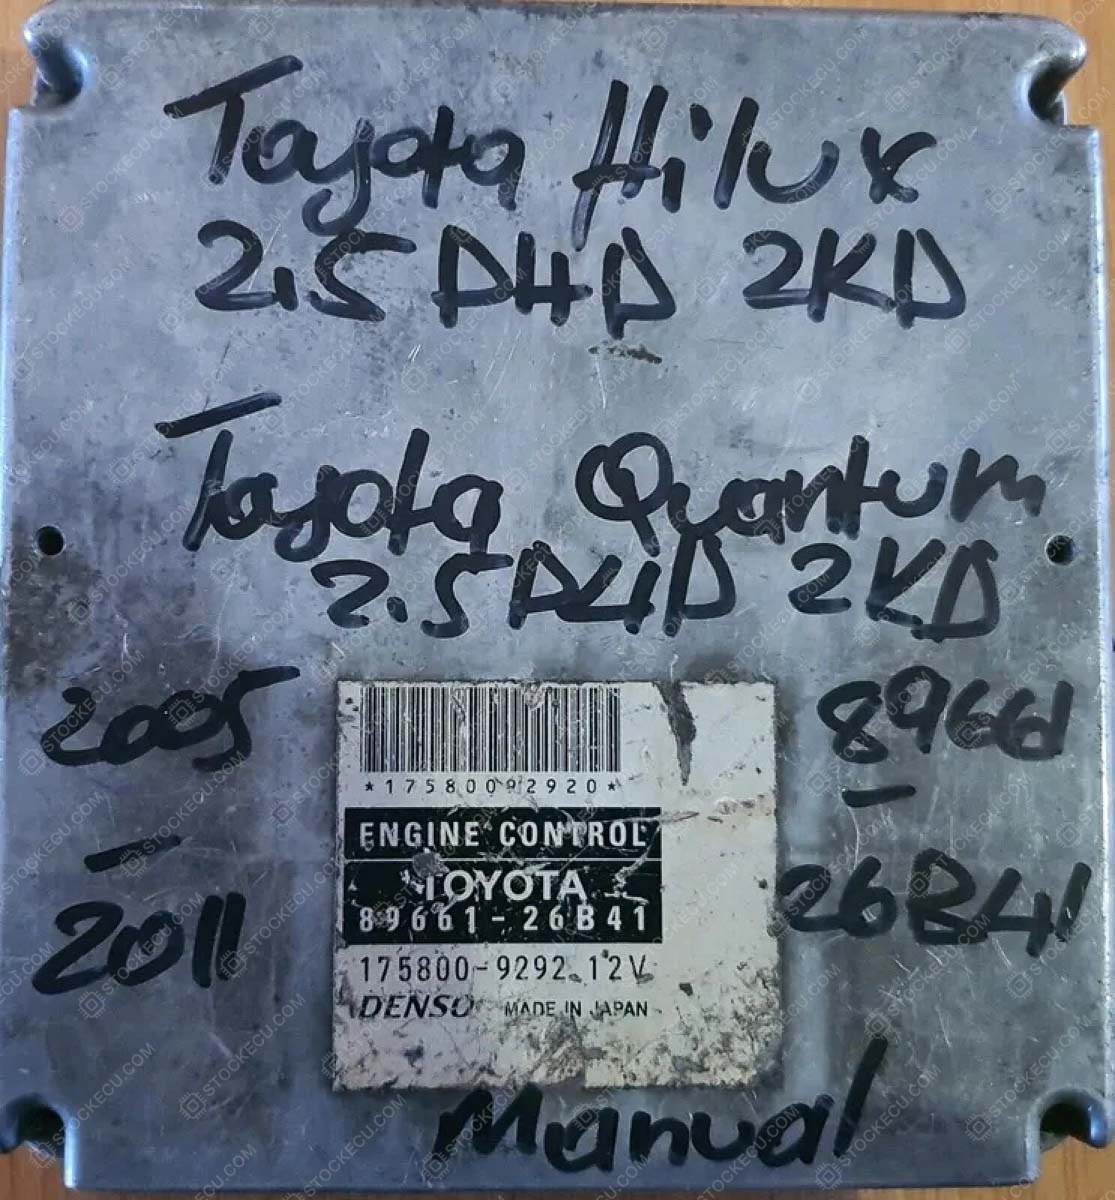 Toyota Hilux
2.5 D4D 2KD
Toyota Quantum
2.5 D4D 2KD
2005
-
2011
89661
-
26B41
*17580092920*
ENGINE CONTROL
TOYOTA
89661-26B41
175800-9292 12V
DENSO MADE IN JAPAN
Manual
STOCKECU.COM